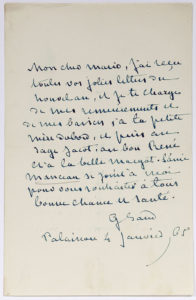 Mon cher mario, j'ai reçu
toutes vos jolies lettres du
nouvel an, et je te charge
de mes remerciements et
de mes baisers à la petite
mire d'abord, et puis au
sage Jacot, au bon René
et à la belle margot. L'ami
Manceau se joint à moi
pour vous souhaiter à tous
bonne chance et santé.
G Sand
Palaiseau 4 janvier 65